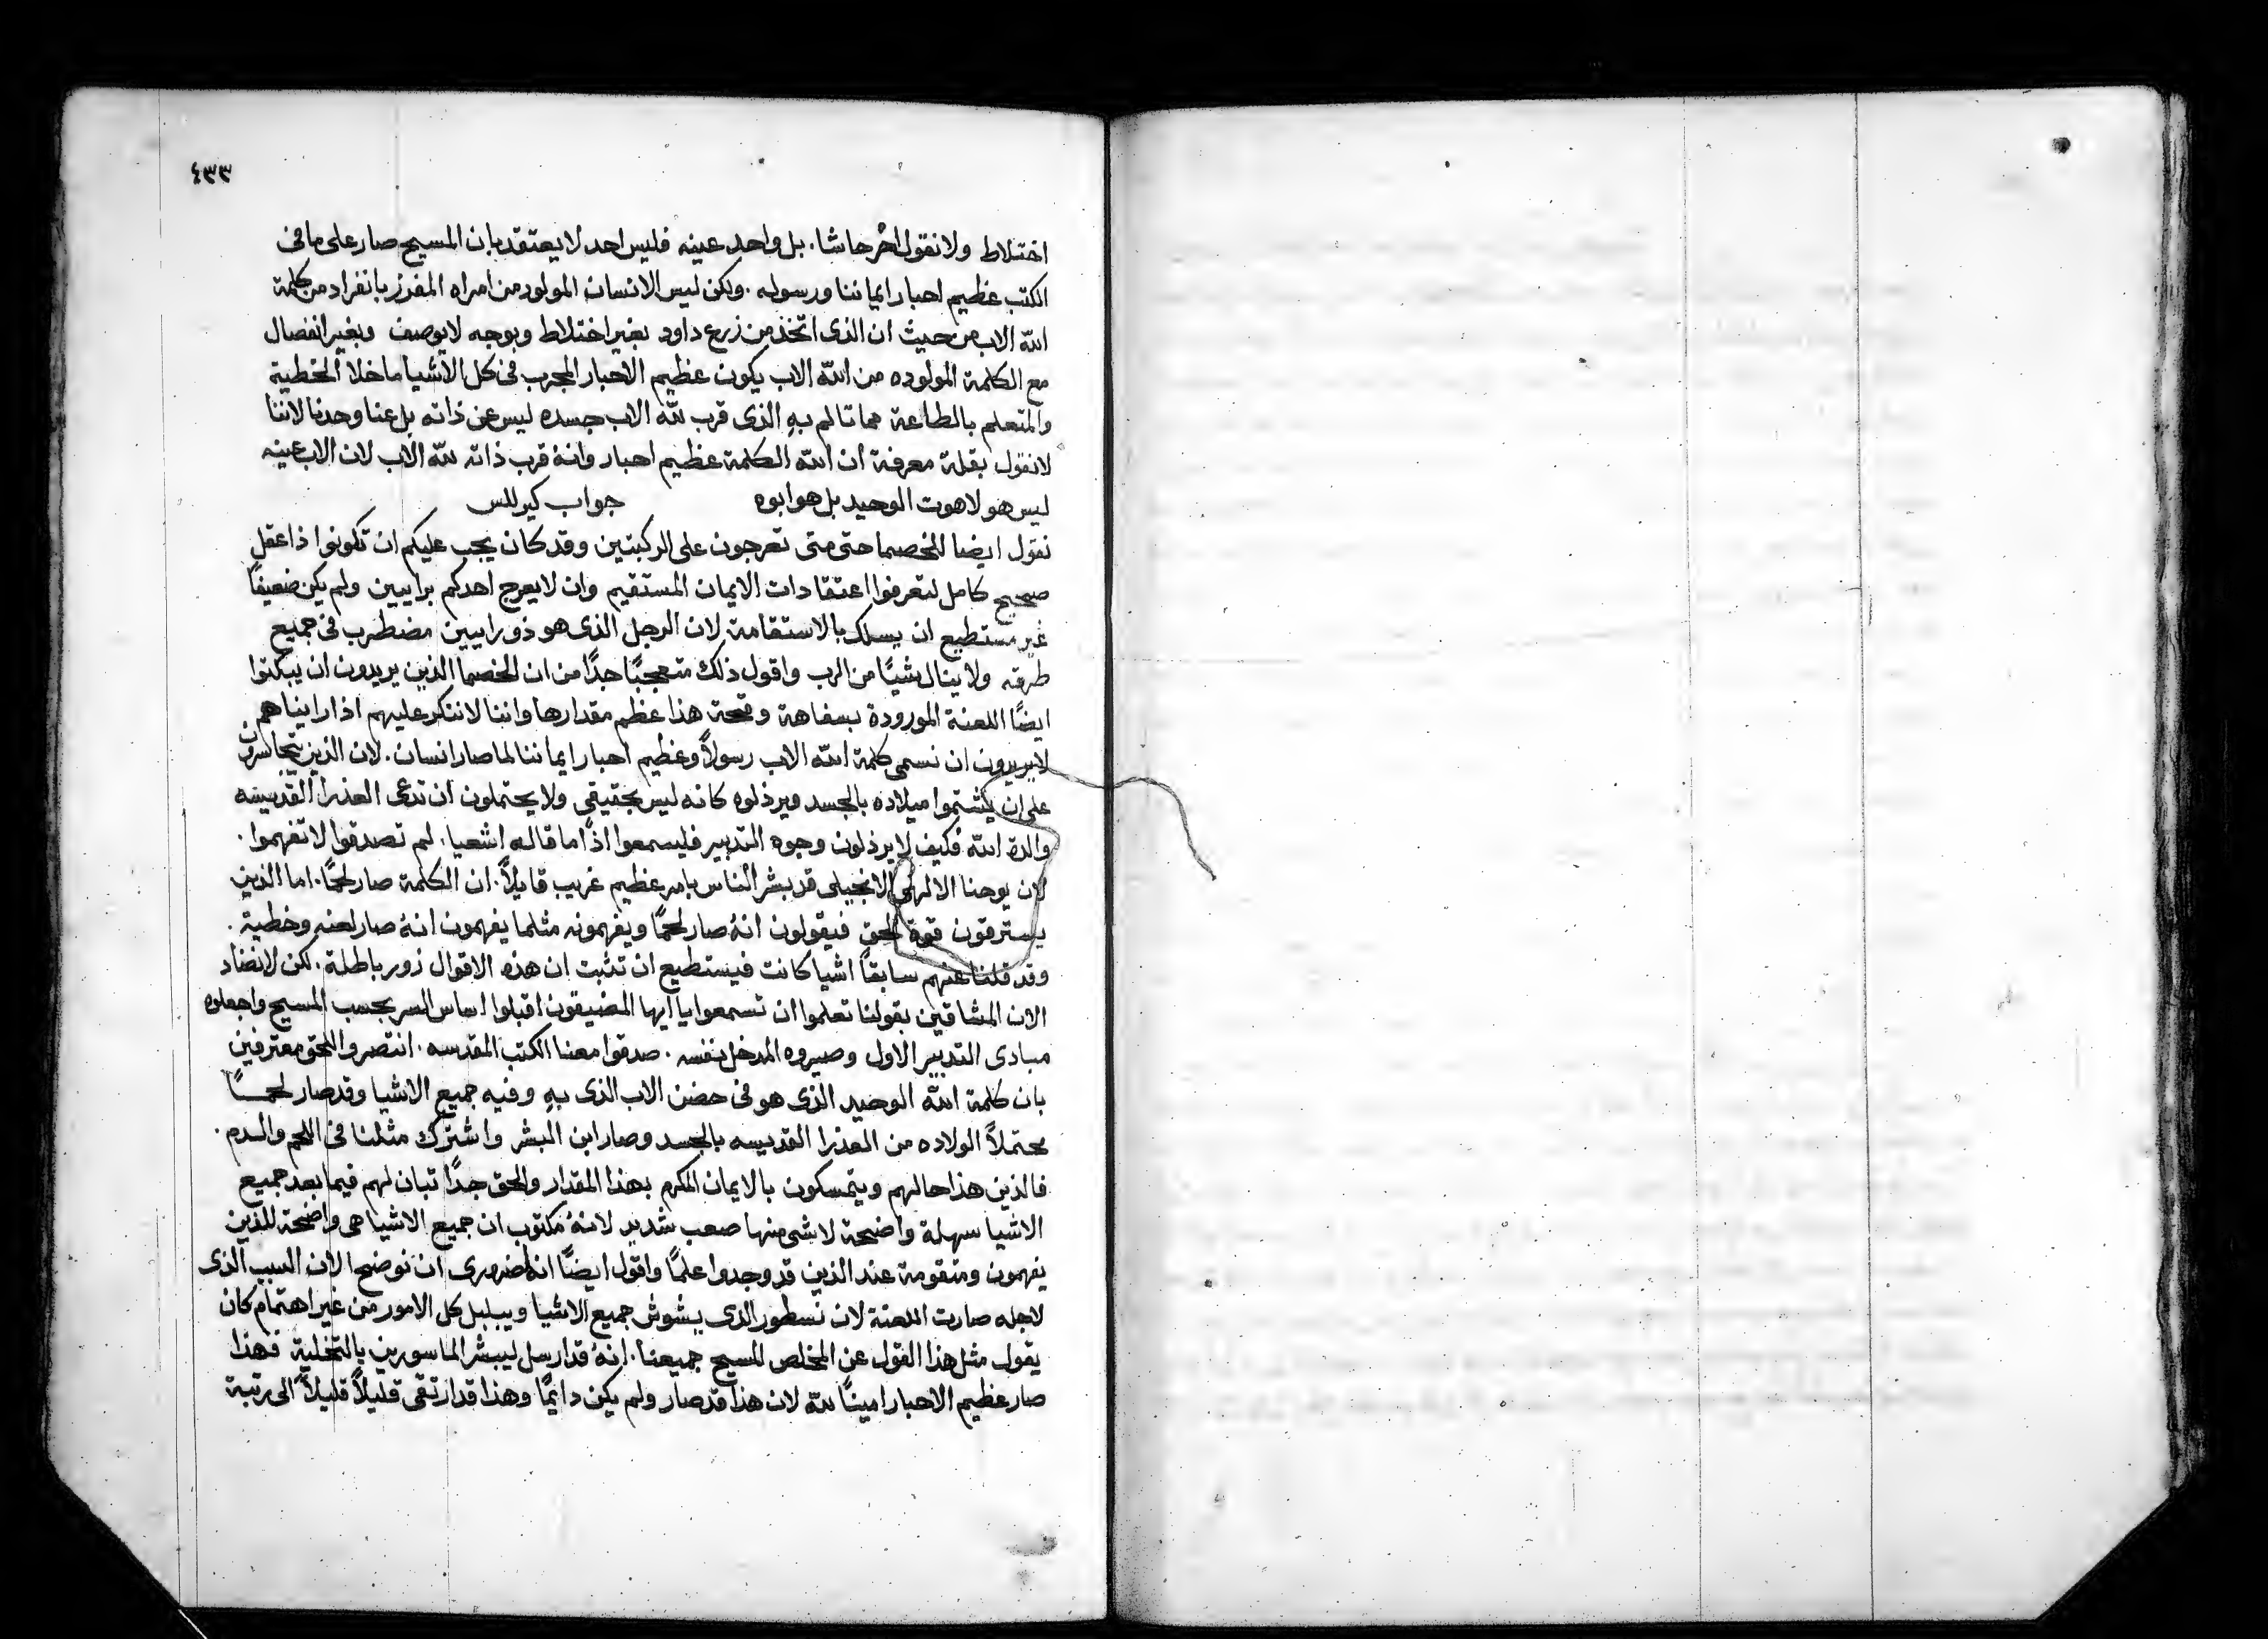 ٤٣٣
اختلاط ولا نقول اخر حاشا. بل واحد عينه فليس احد لا يعتقد بان المسيح صار على ما فى
الكتب عظيم احبار ايماننا ورسوله. ولكن ليس الانسان المولود من امراه المفرز بانفراد من كلمة
الله الاب من حيث ان الذى اتخذ من زرع داود بغير اختلاط وبوجه لا يوصف وبغير انفصال
مع الكلمة المولوده من الله الاب يكون عظيم الاحبار المجرب فى كل الاشيا ما خلا الخطية
والمتعلم بالطاعة مما تالم بهِ الذى قرب لله الاب جسده ليس عن ذاته بل عنا وحدنا لاننا
لا نقول بقلة معرفة ان الله الكلمة عظيم احبار وانهُ قرب ذاته لله الاب لان الاب عينه
ليس هو لاهوت الوحيد بل هو ابوه جواب كيرللس
نقول ايضا للخصما حتى متى تعرجون على الركبتين وقد كان يجب عليكم ان تكونوا ذا عقل
صحيح كامل لتعرفوا اعتقادات الايمان المستقيم وان لا يعرج احدكم برايين ولم يكن ضعيفًا
غير مستطيع ان يسلك بالاستقامة لان الرجل الذى هو ذو رايين مضطرب فى جميع
طرقه ولا ينال شيًا من الرب واقول ذلك متعجبًا جدًا من ان الخصما الذين يريدون ان يبكتوا
ايضًا اللعنة الموردة بسفاهة وقحة هذا عظم مقدارها واننا لا ننكر عليهم اذا رايناهم
لا يريدون ان نسمى كلمة الله الاب رسولاً وعظيم احبار ايماننا لما صار انسان. لان الذين يتجاسرون
على ان يشتموا ميلاده بالجسد ويرذلوه كانه ليس بحقيقى ولا يحتملون ان تدعى العذرا القديسه
والدة الله فكيف لا يرذلون وجوه التدبير فليسمعوا اذًا ما قاله اشعيا. لم تصدقوا لا تفهموا.
لان يوحنا الالهى الانجيلى قد بشر الناس بامر عظيم غريب قايلاً. ان الكلمة صار لحمًا. اما الذين
يسترقون قوة الحق فيقولون انهُ صار لحمًا ويفهمونه مثلما يفهمون انهُ صار لعنه وخطية.
وقد قلنا عنهم سابقًا اشيا كانت فيستطيع ان تثبت ان هذه الاقوال زور باطلة. لكن لانضاد
الان المشاقين بقولنا تعلموا ان تسمعوا يا ايها المضيقون اقبلوا اساس السر بحسب المسيح واجعلوه
مبادى التدبير الاول وصيروه المدخل بنفسه. صدقوا معنا الكتب المقدسه. انتصروا للحق معترفين
بان كلمة الله الوحيد الذى هو فى حضن الاب الذى بهِ وفيه جميع الاشيا وقد صار لحمًا
محتملاً الولاده من العذرا القديسه بالجسد وصار ابن البشر واشترك مثلنا فى اللحم والدم.
فالذين هذا حالهم ويتمسكون بالايمان المكرم بهذا المقدار والحق جدًا تبان لهم فيما بعد جميع
الاشيا سهلة واضحة لا شى منها صعب شديد لانهُ مكتوب ان جميع الاشيا هى واضحة للذين
يفهمون ومتقومة عند الذين قد وجدوا علمًا واقول ايضًا انه لضرورى ان نوضح الان السبب الذى
لاجله صارت اللعنة لان نسطور الذى يشوش جميع الاشيا ويبلبل كل الامور من غير اهتمام كان
يقول مثل هذا القول عن المخلص المسيح جميعنا. انهُ قد ارسل ليبشر الماسورين بالتخلية فهذا
صار عظيم الاحبار امينًا لله لان هذا قد صار ولم يكن دايمًا وهذا قد ارتقى قليلاً قليلاً الى رتبة